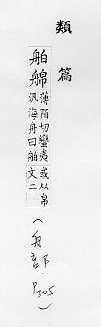 類篇
舶䑿薄陌切蠻夷
汎海舟曰舶
或从帛
文二
(舟部
P305)